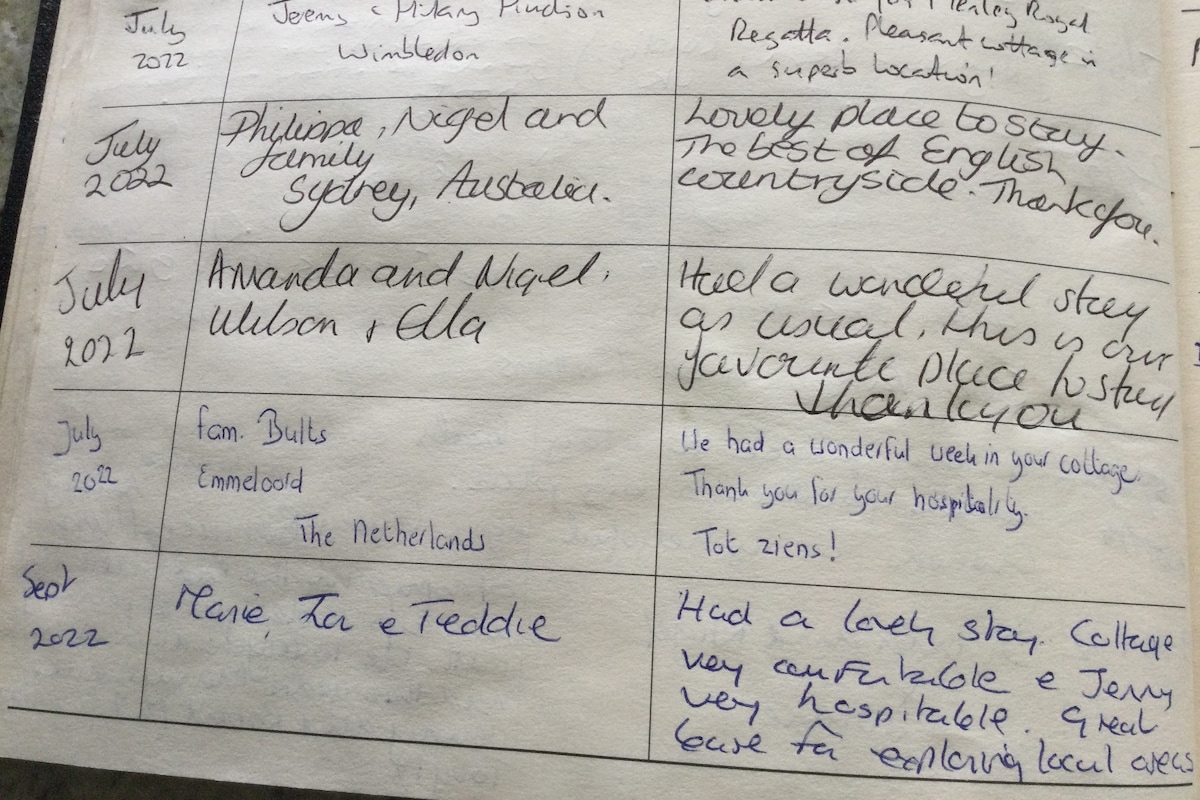 July
2022
Jeremy & Hilary
Wimbledon
Henley Royal
Regatta. Pleasant cottage in
a superb location!
July
2022
Philippa, Nigel and
family
Sydney, Australia.
Lovely place to stay.
The best of English
countryside. Thank you.
July
2022
Amanda and Nigel.
Wilson & Ella
Had a wonderful stay
as usual, this is our
favourite place to stay
Thank you
July
2022
fam. Bults
Emmeloord
The Netherlands
We had a wonderful week in your cottage.
Thank you for your hospitality.
Tot ziens!
Sept
2022
Marie, Ian & Freddie
Had a lovely stay. Cottage
very comfortable & Jerry
very hospitable. Great
base for exploring local areas